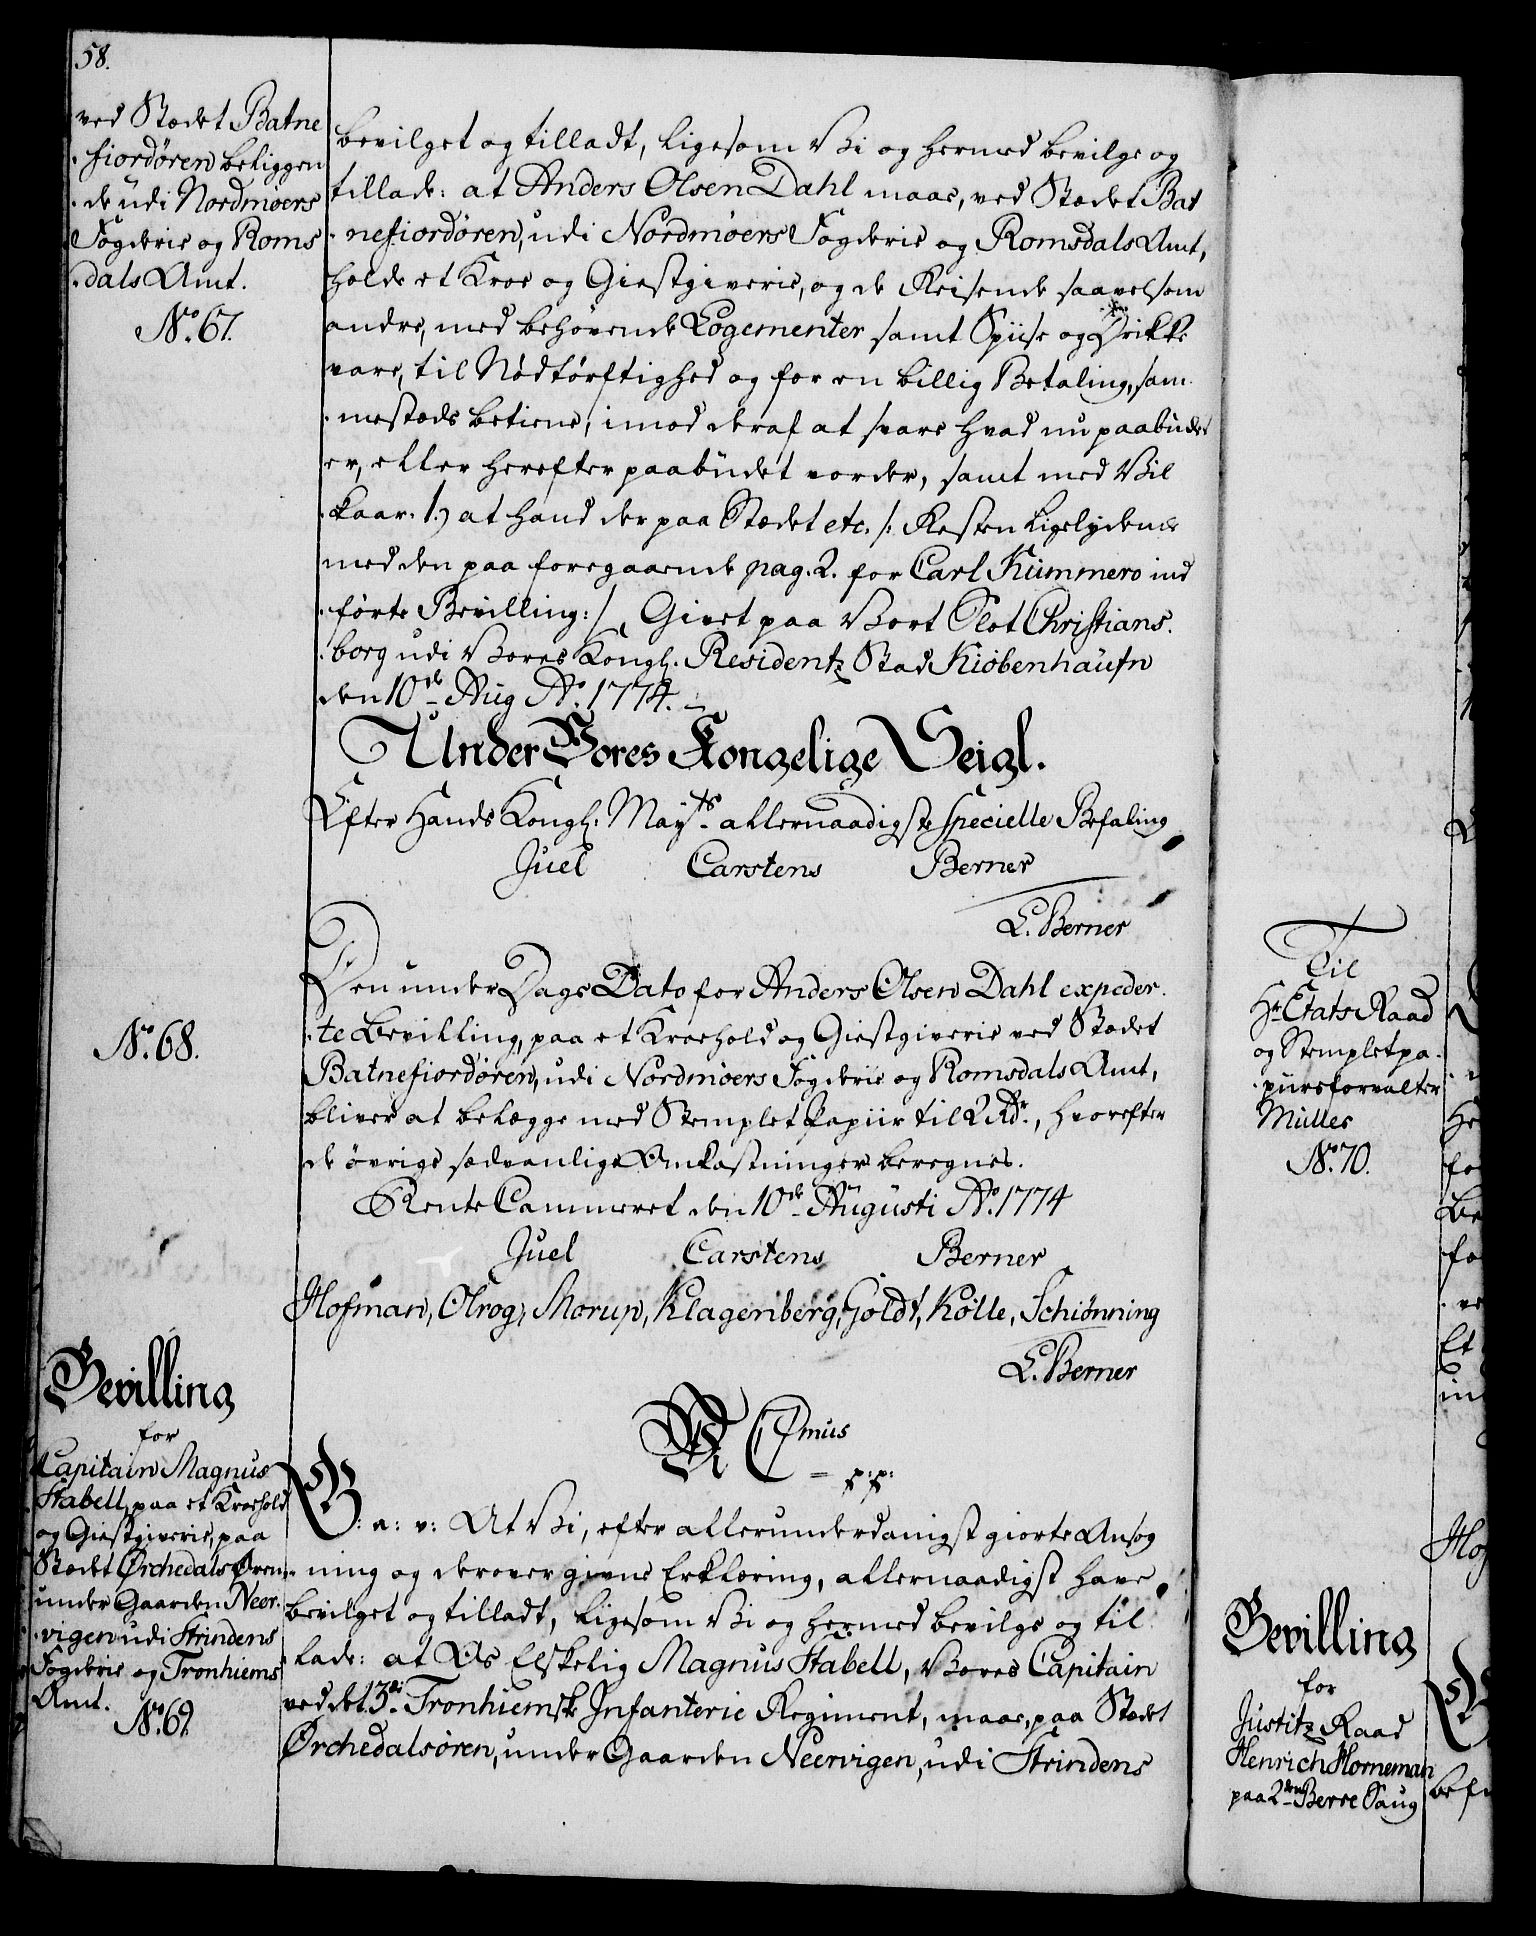 58.
ved Stædet Batne
fiordøren beliggen
de udi Nordmøers
Fogderie og Roms
dals Amt.
No. 67.
bevilget og tilladt, ligesom Vi og hermed bevilge og
tillade: at Anders Olsen Dahl maae, ved Stædet Bat
nefiordøren, udi Nordmøers Fogderie og Romsdals Amt,
holde et Kroe og Giestgiverie, og de Reisende saavelsom
andre, med behøvende Logementer samt Spiise og Drikke
vare, til Nødtørftighed og for en billig Betaling, sam
mestæds betiene, imod deraf at svare hvad nu paabudet
er, eller herefter paabüdet vorder, samt med Vil
kaar. 1.) at hand der paa Stædet etc. /: Resten ligelydende
med den paa foregaaende pag. 2. for Carl Kümmero ind
førte Bevilling: / Givet paa Vort Slot Christians
borg udi Vores Kongl. Residentz Stad Kiøbenhaüfn
den 10de Aug Ao. 1774.
Under Vores Kongelige Seigl.
Efter Hands Kongl. Mayts allernaadigste specielle Befaling
Juel Carstens Berner
L. Berner
No. 68.
Den under Dags Dato for Anders Olsen Dahl expeder
te Bevilling, paa et Kroehold og Giestgiverie ved Stædet
Batnefiordøren, udi Nordmøers Fogderie og Romsdals Amt,
bliver at belægge med Stemplet Papiir til 2 Rdr., hvorefter
de øvrige sædvanlige Omkastninger beregnes.
Rente Cammeret den 10de Augüsti Ao. 1774
Juel Carstens Berner
Hofman, Olrog, Morup, Klagenberg, Goldt, Kølle, Schiønning
L. Berner
Bevilling
for
Capitain Magnus
Stabell, paa et Kroehold
og Giestgiverie, paa
Stædet Ørchedalsøren
under Gaarden Neer
vigen udi Strindens
Fogderie og Tronhiems
Amt.
No. 69.
C 7mus
p: p:
G: a: v: At Vi, efter allerunderdanigst giorte Ansøg
ning og derover givne Erklæring, allernaadigst have
bevilget og tilladt, ligesom Vi og hermed bevilge og til
lade: at Os Elskelig Magnus Stabell, Vores Capitain
ved det 13de Tronhiemske Infanterie Regiment, maae, paa Stædet
Ørchedalsøren, under Gaarden Neervigen, udi Strindens
Til
Hr. Etats Raad
og Stempletpa
piirsforvalter
Müller
No. 70.
Bevilling
for
Justitz Raad
Henrich Horneman
paa 2de Berre Saug